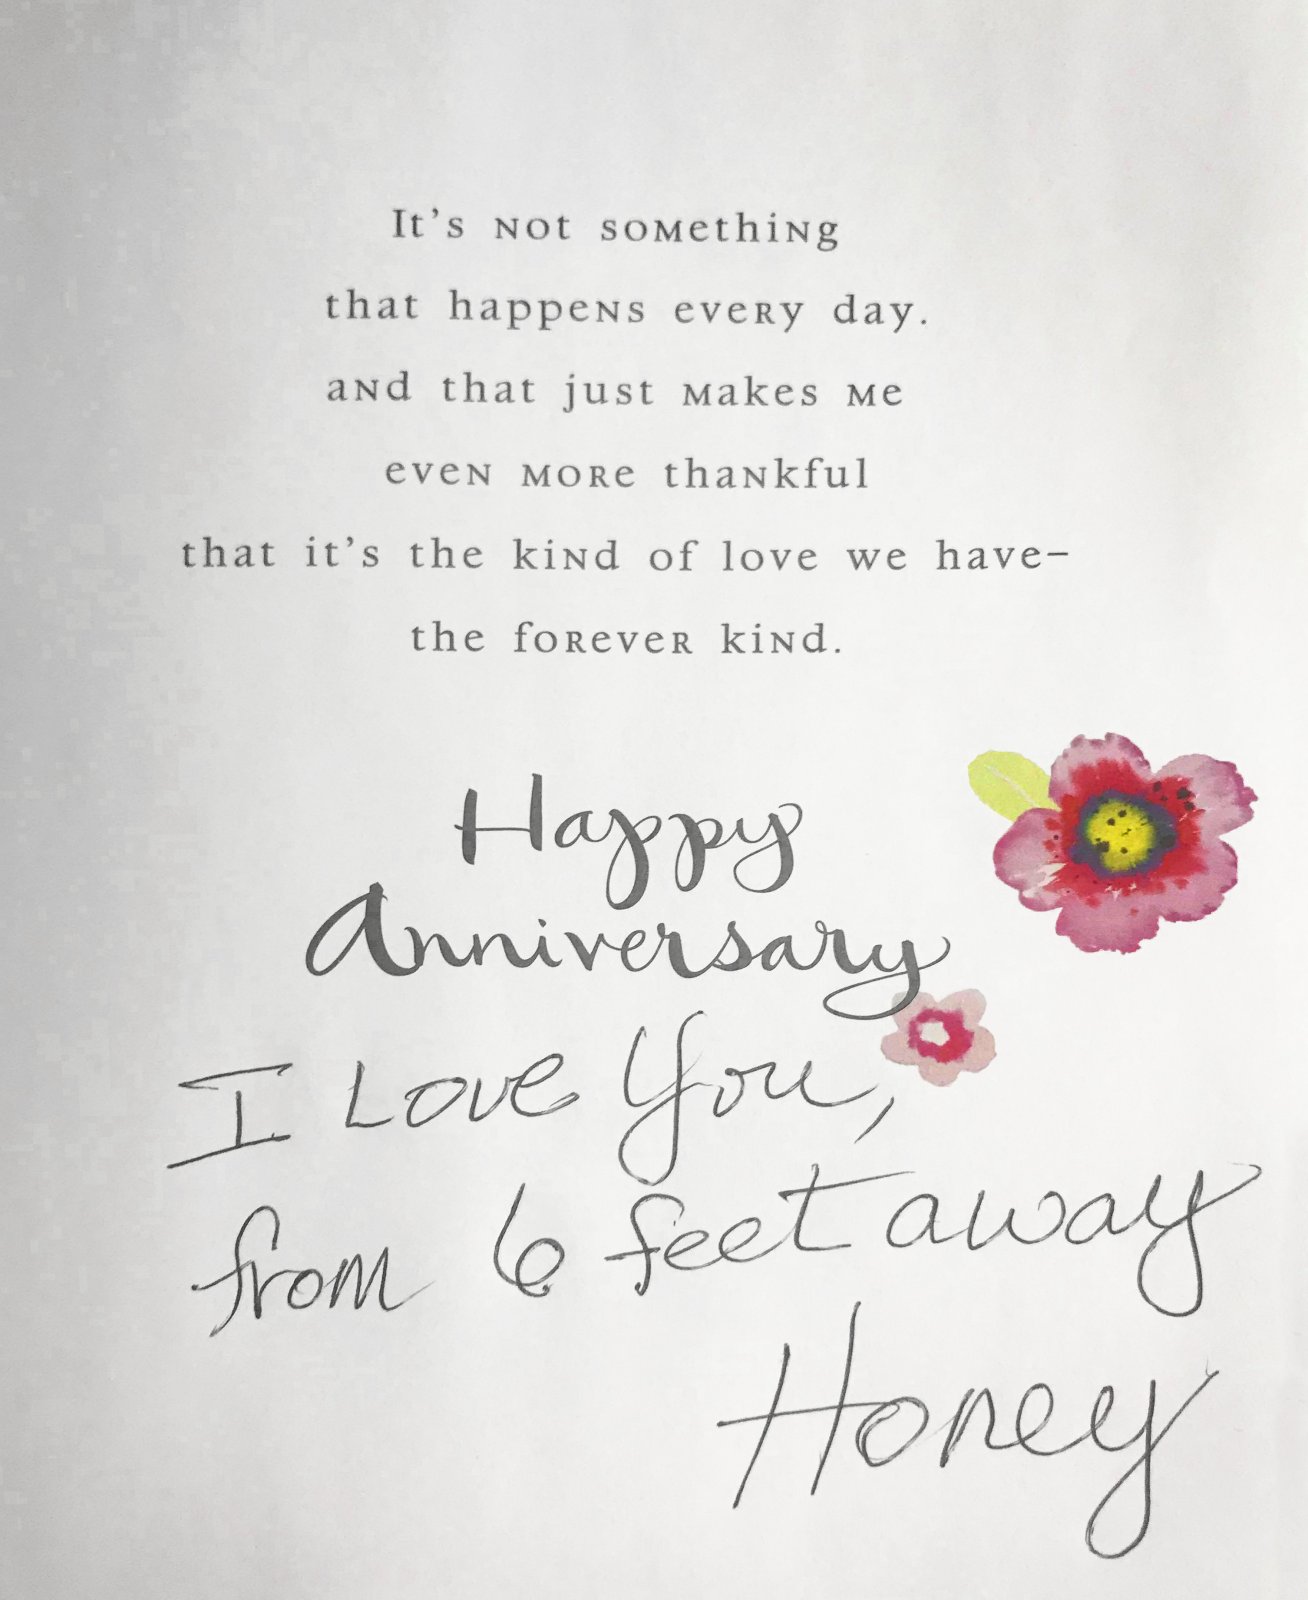 It's not something
that happens every day.
and that just makes me
even more thankful
that it's the kind of love we have–
the forever kind.
Happy
Anniversary
I Love You,
from 6 feet away
Honey